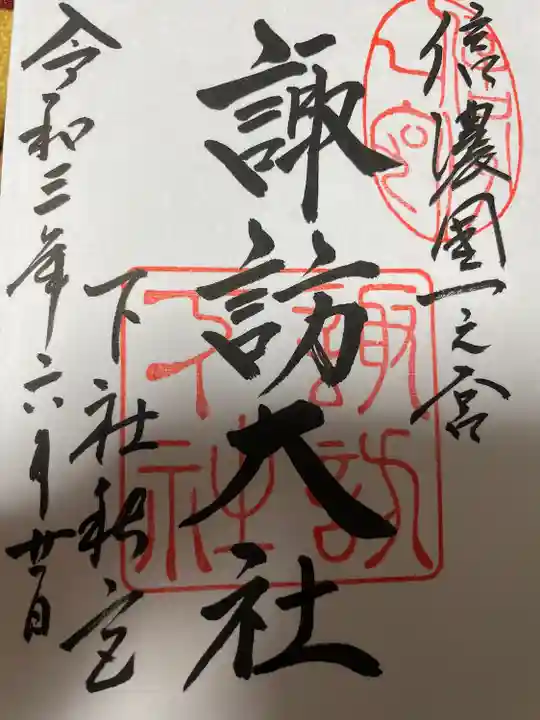 信濃國一之宮
諏訪大社
下社秋宮
令和三年六月廿日
諏訪
下社